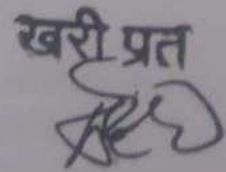 खरी प्रत